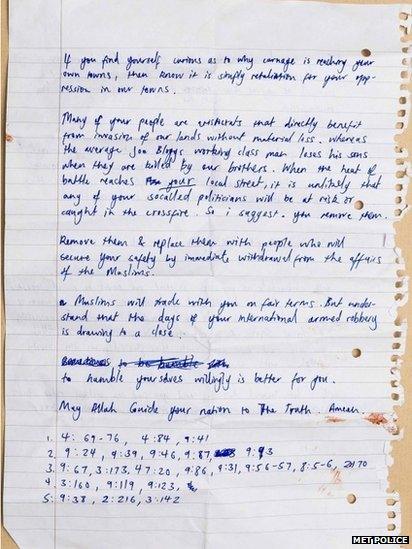 If you find yourself curious as to why carnage is reaching your
own towns, then know it is simply retaliation for your opp-
ression in our towns.
Many of your people are aristocrats that directly benefit
from invasion of our lands without material loss. whereas
the average Joe Bloggs working class man loses his sons
when they are killed by our brothers. When the heat of
battle reaches your local street, it is unlikely that
any of your socalled politicians will be at risk or
caught in the crossfire. So i suggest you remove them.
Remove them & replace them with people who will
secure your safety by immediate withdrawal from the affairs
of the Muslims.
Muslims will trade with you on fair terms. But under-
stand that the days of your international armed robbery
is drawing to a close.
to be humble
to humble yourselves willingly is better for you.
May Allah Guide your nation to The Truth. Ameen.
1. 4: 69-76, 4:84, 9:41
2. 9:24, 9:39, 9:46, 9:87, 9:93
3. 9:67, 3:173, 47:20, 9:86, 9:31, 9:56-57, 8:5-6,
4. 3:160, 9:119, 9:123,
5. 9:38, 2:216, 3:142
MET POLICE